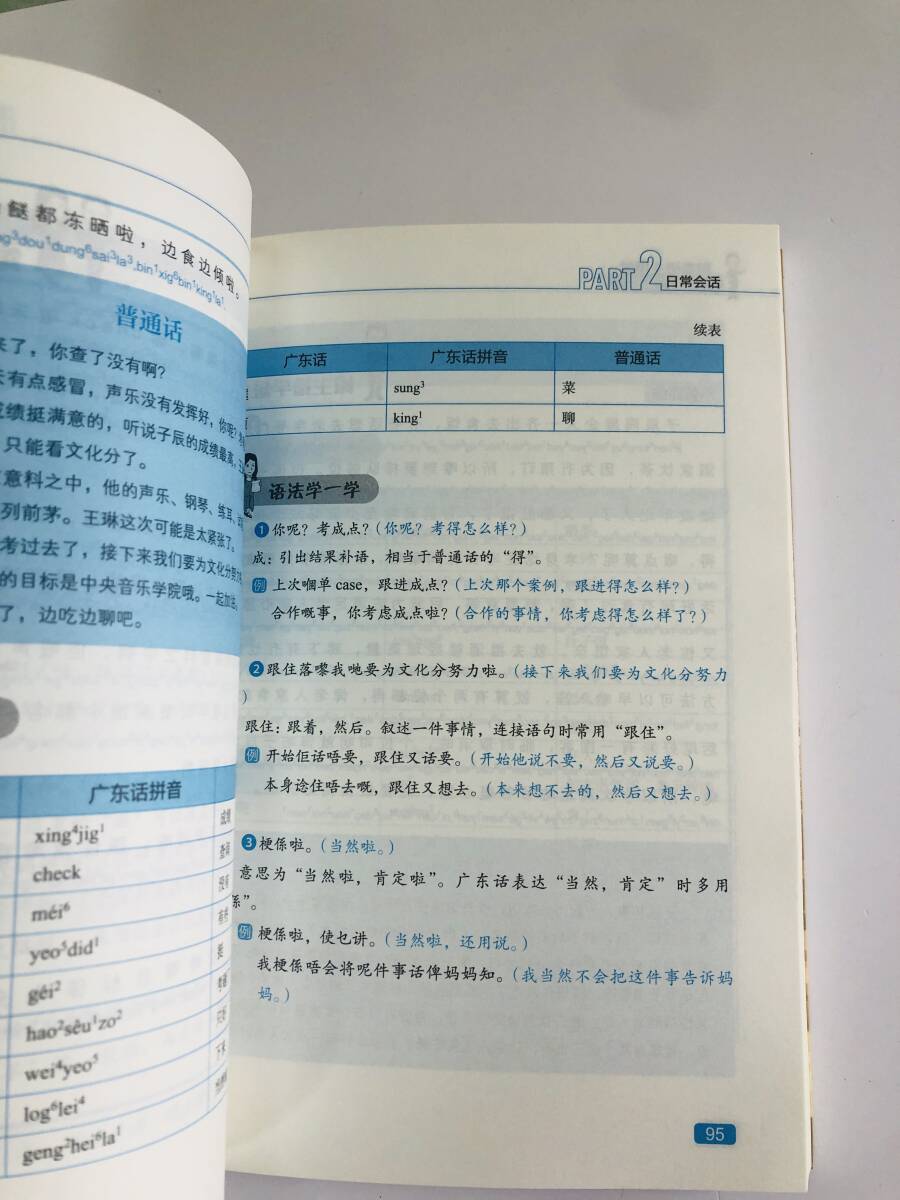 餸都冻晒啦，边食边倾啦。
dou¹dung⁶sai³la³,bin¹xig⁶bin¹king¹la¹.
普通话
来了，你查了没有啊？
有点感冒，声乐没有发挥好，你呢？
成绩挺满意的，听说子辰的成绩最高，
只能看文化分了。
意料之中，他的声乐、钢琴、练耳、
列前茅。王琳这次可能是太紧张了。
考过去了，接下来我们要为文化分努力
的目标是中央音乐学院哦。一起加油，
了，边吃边聊吧。
广东话拼音
xing⁴jig¹
check
méi⁶
yeo⁵did¹
géi²
hao²sêu¹zo²
wei⁴yeo⁵
log⁶lei⁴
geng²hei⁶la¹
PART 2 日常会话
续表
广东话 广东话拼音 普通话
sung³ 菜
king¹ 聊
语法学一学
1 你呢？考成点？（你呢？考得怎么样？）
成：引出结果补语，相当于普通话的“得”。
例 上次嗰单 case，跟进成点？（上次那个案例，跟进得怎么样？）
合作嘅事，你考虑成点啦？（合作的事情，你考虑得怎么样了？）
2 跟住落嚟我哋要为文化分努力啦。（接下来我们要为文化分努力
）
跟住：跟着，然后。叙述一件事情，连接语句时常用“跟住”。
例 开始佢话唔要，跟住又话要。（开始他说不要，然后又说要。）
本身谂住唔去嘅，跟住又想去。（本来想不去的，然后又想去。）
3 梗係啦。（当然啦。）
意思为“当然啦，肯定啦”。广东话表达“当然，肯定”时多用
係”。
例 梗係啦，使乜讲。（当然啦，还用说。）
我梗係唔会将呢件事话俾妈妈知。（我当然不会把这件事告诉妈
妈。）
95